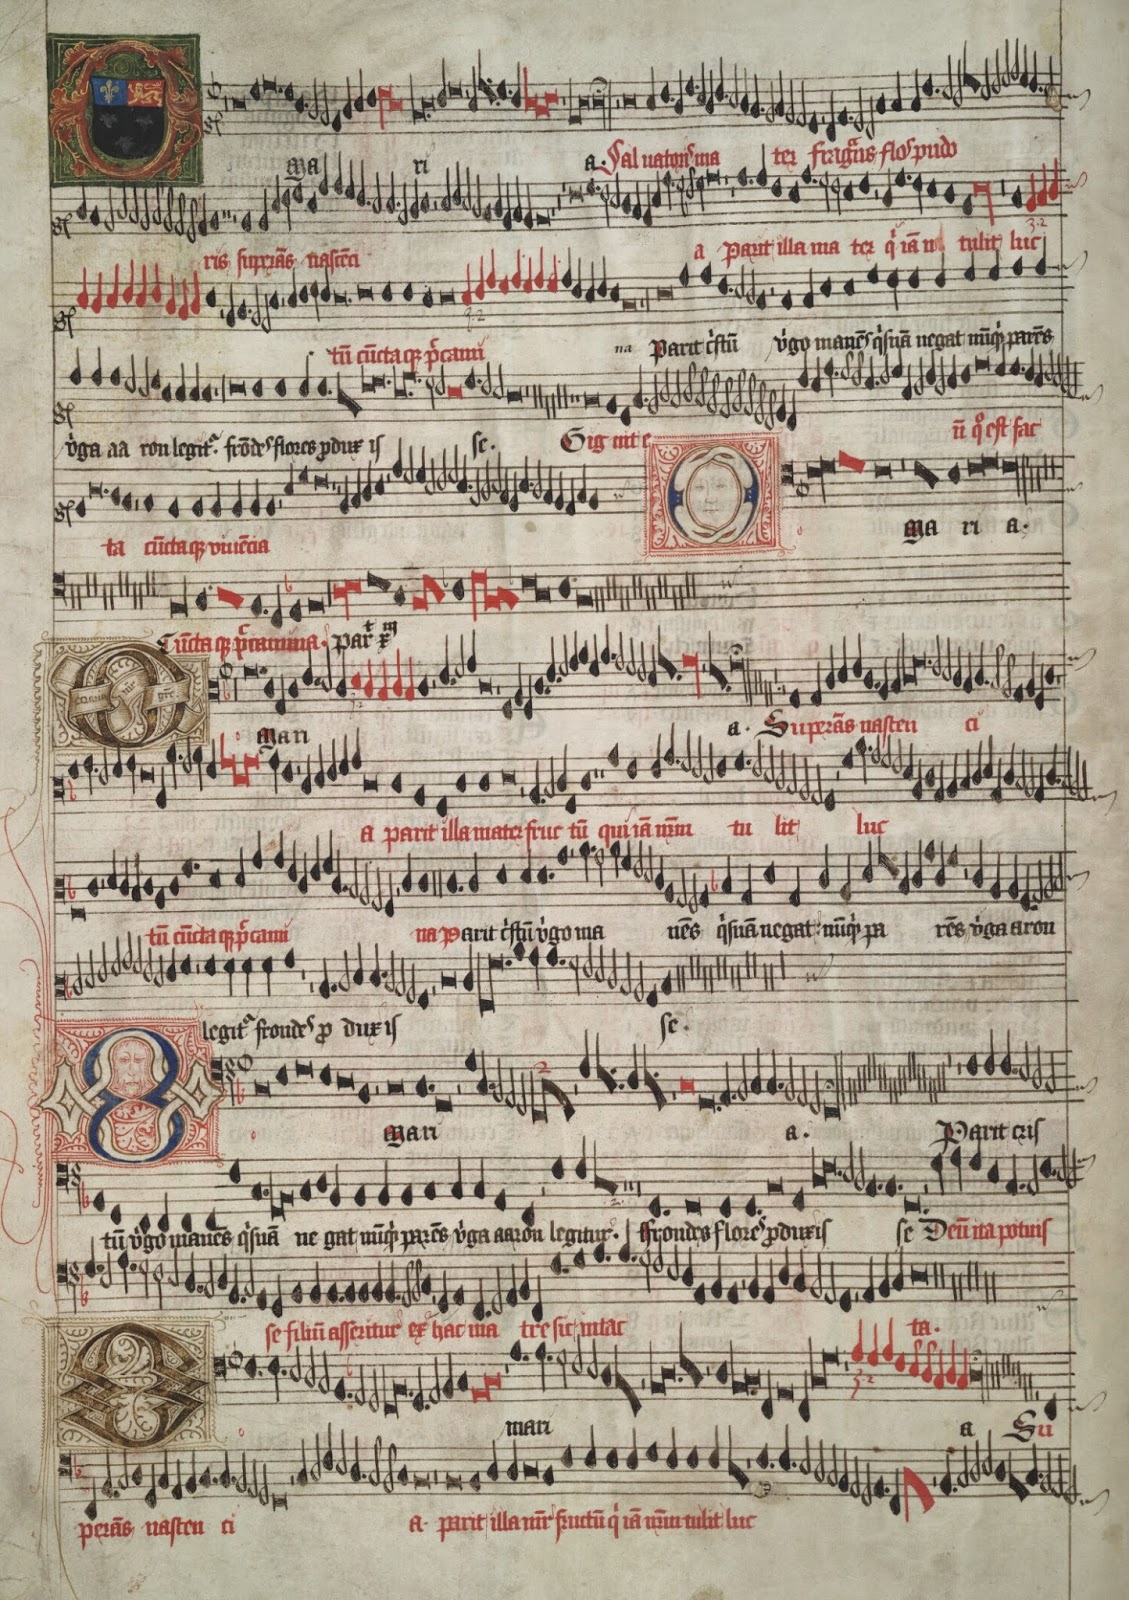 Ma ri a. Salvatoris ma ter fragrās flos pudo
ris superās nascēci a Parit illa ma ter tulit luc
tū cūcta qȝ p̄cami na Parit xp̄stū v̄go manēs q̄ suā negat nūq̄ parēs
v̄ga aa ron legitr̄ frōdes flores pdux is se. Gig nite est fac
ta cūcta qȝ vivēcia
Ma ri a.
Cūcta qȝ p̄camina. Part
Mari a. Superās nascen ci
a parit illa mater fruc tū qui iā nrm tu lit luc
tū cūcta qȝ p̄cami na Parit xp̄stū v̄go ma nēs q̄ suā negat nūq̄ pa rēs v̄ga aaron
legitr̄ frondes p dux is se.
Mari a. Parit cris
tū v̄go manēs q̄ suā ne gat nūq̄ parēs v̄ga aaron legitur. Frondes flores pduxis se Deū ita potuis
se filiū asseritur ex hac ma tre sic intac ta.
mari a Su
perās nascen ci a parit illa mr̄ fructū q̄ iā nrm tulit luc